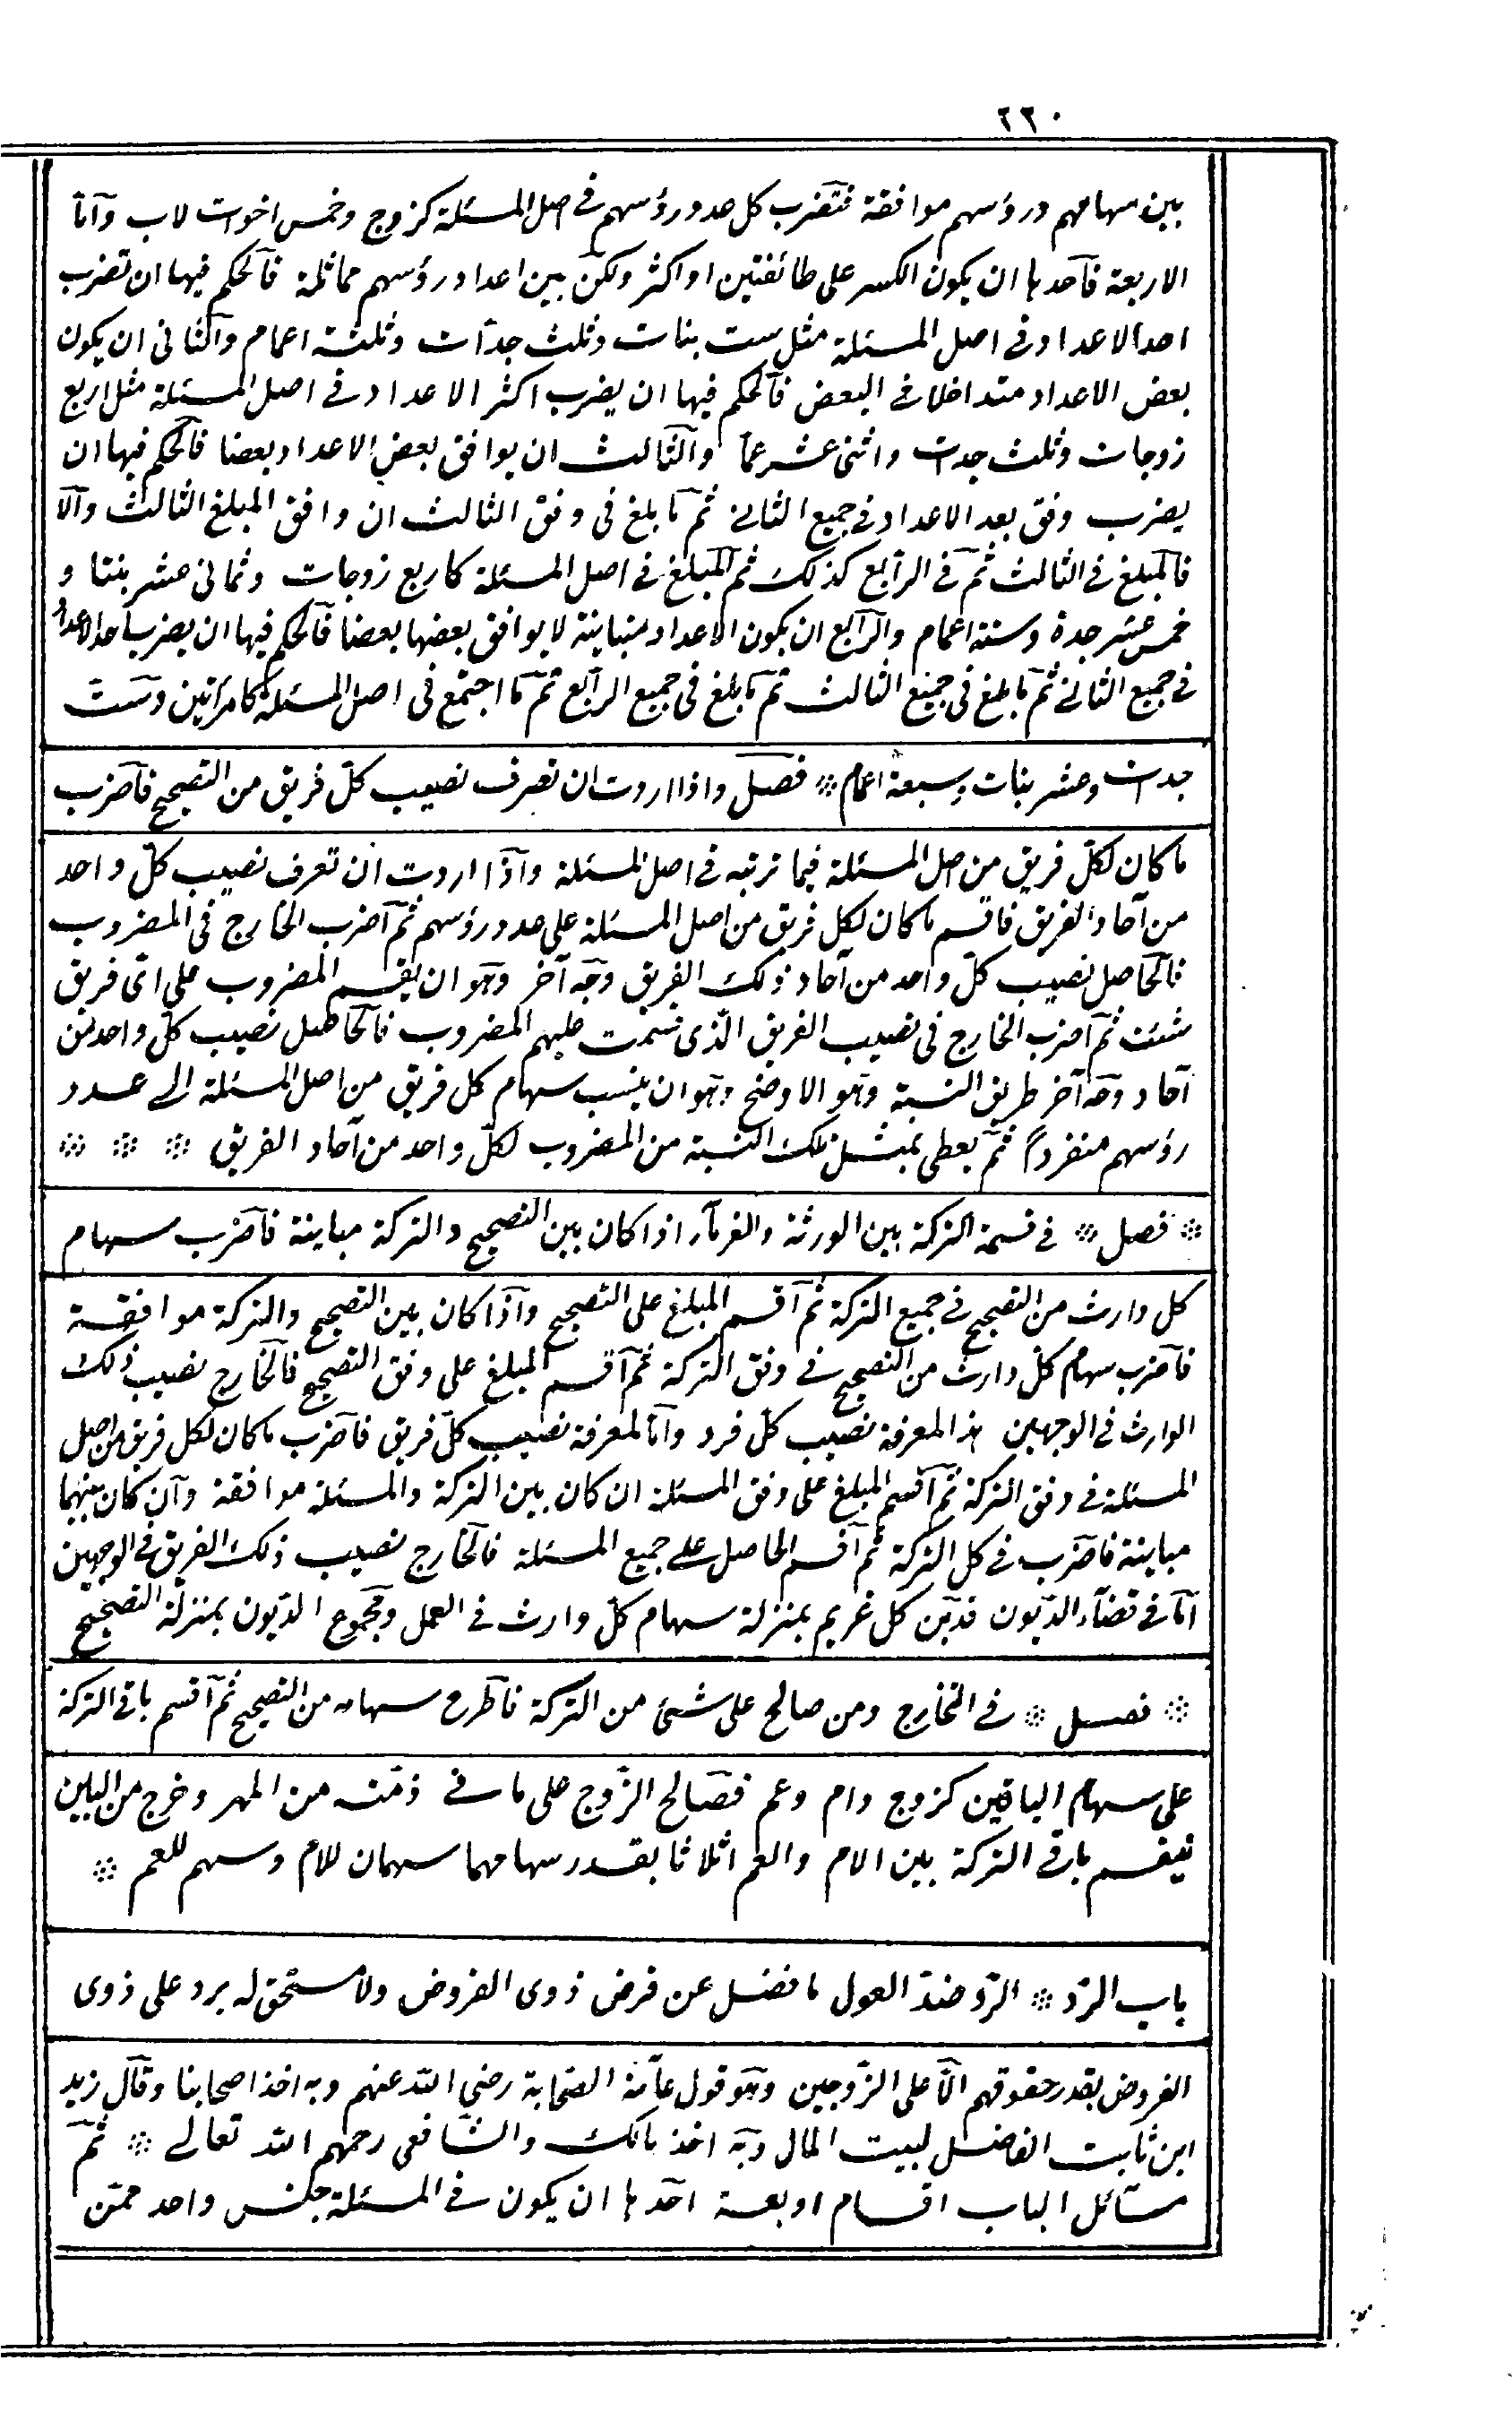 ٢٢٠
بين سهامهم ورؤسهم موافقة فتضرب كل عدد رؤسهم في اصل المسئلة كزوج وخمس اخوات لاب وأما
الاربعة فأحدها ان يكون الكسر على طائفتين او اكثر ولكن بين اعداد رؤسهم مماثلة فالحكم فيها ان تضرب
احد الاعداد في اصل المسئلة مثل ست بنات وثلث جدات وثلثة اعمام والثانى ان يكون
بعض الاعداد متداخلا في البعض فالحكم فيها ان يضرب اكثر الاعداد في اصل المسئلة مثل اربع
زوجات وثلث جدات واثنى عشر عما والثالث ان يوافق بعض الاعداد بعضا فالحكم فيها ان
يضرب وفق بعد الاعداد في جميع الثانے ثم ما بلغ فى وفق الثالث ان وافق المبلغ الثالث والا
فالمبلغ في الثالث ثم فى الرابع كذلك ثم المبلغ في اصل المسئلة كاربع زوجات وثمانى عشر بنتا و
خمس عشر جدة وستة اعمام والرابع ان يكون الاعداد متباينة لا يوافق بعضها بعضا فالحكم فيها ان يضرب احد الاعداد
في جميع الثانے ثم ما بلغ فى جميع الثالث ثم ما بلغ فى جميع الرابع ثم ما اجتمع فى اصل المسئلة كامرأتين وست
جدات وعشر بنات وسبعة اعمام ⁘ فصل واذا اردت ان تعرف نصيب كل فريق من التصحيح فاضرب
ما كان لكل فريق من اصل المسئلة فيما ترتبه في اصل المسئلة واذا اردت ان تعرف نصيب كل واحد
من آحاد الفريق فاقسم ما كان لكل فريق من اصل المسئلة على عدد رؤسهم ثم اضرب الخارج فى المضروب
فالحاصل نصيب كل واحد من آحاد ذلك الفريق وجه آخر وهو ان يقسم المضروب على اى فريق
شئت ثم اضرب الخارج فى نصيب الفريق الذى قسمت عليهم المضروب فالحاصل نصيب كل واحد من
آحاد وجه آخر طريق النسبة وهو الاوضح وهو ان ينسب سهام كل فريق من اصل المسئلة الى عدد
رؤسهم منفردا ثم يعطى بمثل تلك النسبة من المضروب لكل واحد من آحاد الفريق ⁘ ⁘ ⁘
⁘ فصل ⁘ في قسمة التركة بين الورثة والغرماء اذا كان بين التصحيح والتركة مباينة فاضرب سهام
كل وارث من التصحيح في جميع التركة ثم اقسم المبلغ على التصحيح واذا كان بين التصحيح والتركة موافقة
فاضرب سهام كل وارث من التصحيح في وفق التركة ثم اقسم المبلغ على وفق التصحيح فالخارج نصيب ذلك
الوارث في الوجهين هذا لمعرفة نصيب كل فرد واما لمعرفة نصيب كل فريق فاضرب ما كان لكل فريق من اصل
المسئلة في وفق التركة ثم اقسم المبلغ على وفق المسئلة ان كان بين التركة والمسئلة موافقة وان كان بينهما
مباينة فاضرب في كل التركة ثم اقسم الحاصل على جميع المسئلة فالخارج نصيب ذلك الفريق في الوجهين
اما في قضاء الديون فدين كل غريم بمنزلة سهام كل وارث في العمل ومجموع الديون بمنزلة التصحيح
⁘ فصل ⁘ في التخارج ومن صالح على شئ من التركة فاطرح سهامه من التصحيح ثم اقسم باقى التركة
على سهام الباقين كزوج وام وعم فصالح الزوج على ما في ذمته من المهر وخرج من البين
فيقسم باقى التركة بين الام والعم اثلاثا بقدر سهامهما سهمان للام وسهم للعم ⁘
باب الرد ⁘ الرد ضد العول ما فضل عن فرض ذوى الفروض ولا مستحق له يرد على ذوى
الفروض بقدر حقوقهم الا على الزوجين وهو قول عامة الصحابة رضى الله عنهم وبه اخذ اصحابنا وقال زيد
ابن ثابت الفاضل لبيت المال وبه اخذ مالك والشافعى رحمهم الله تعالے ⁘ ثم
مسائل الباب اقسام اربعة احدها ان يكون في المسئلة جنس واحد ممن